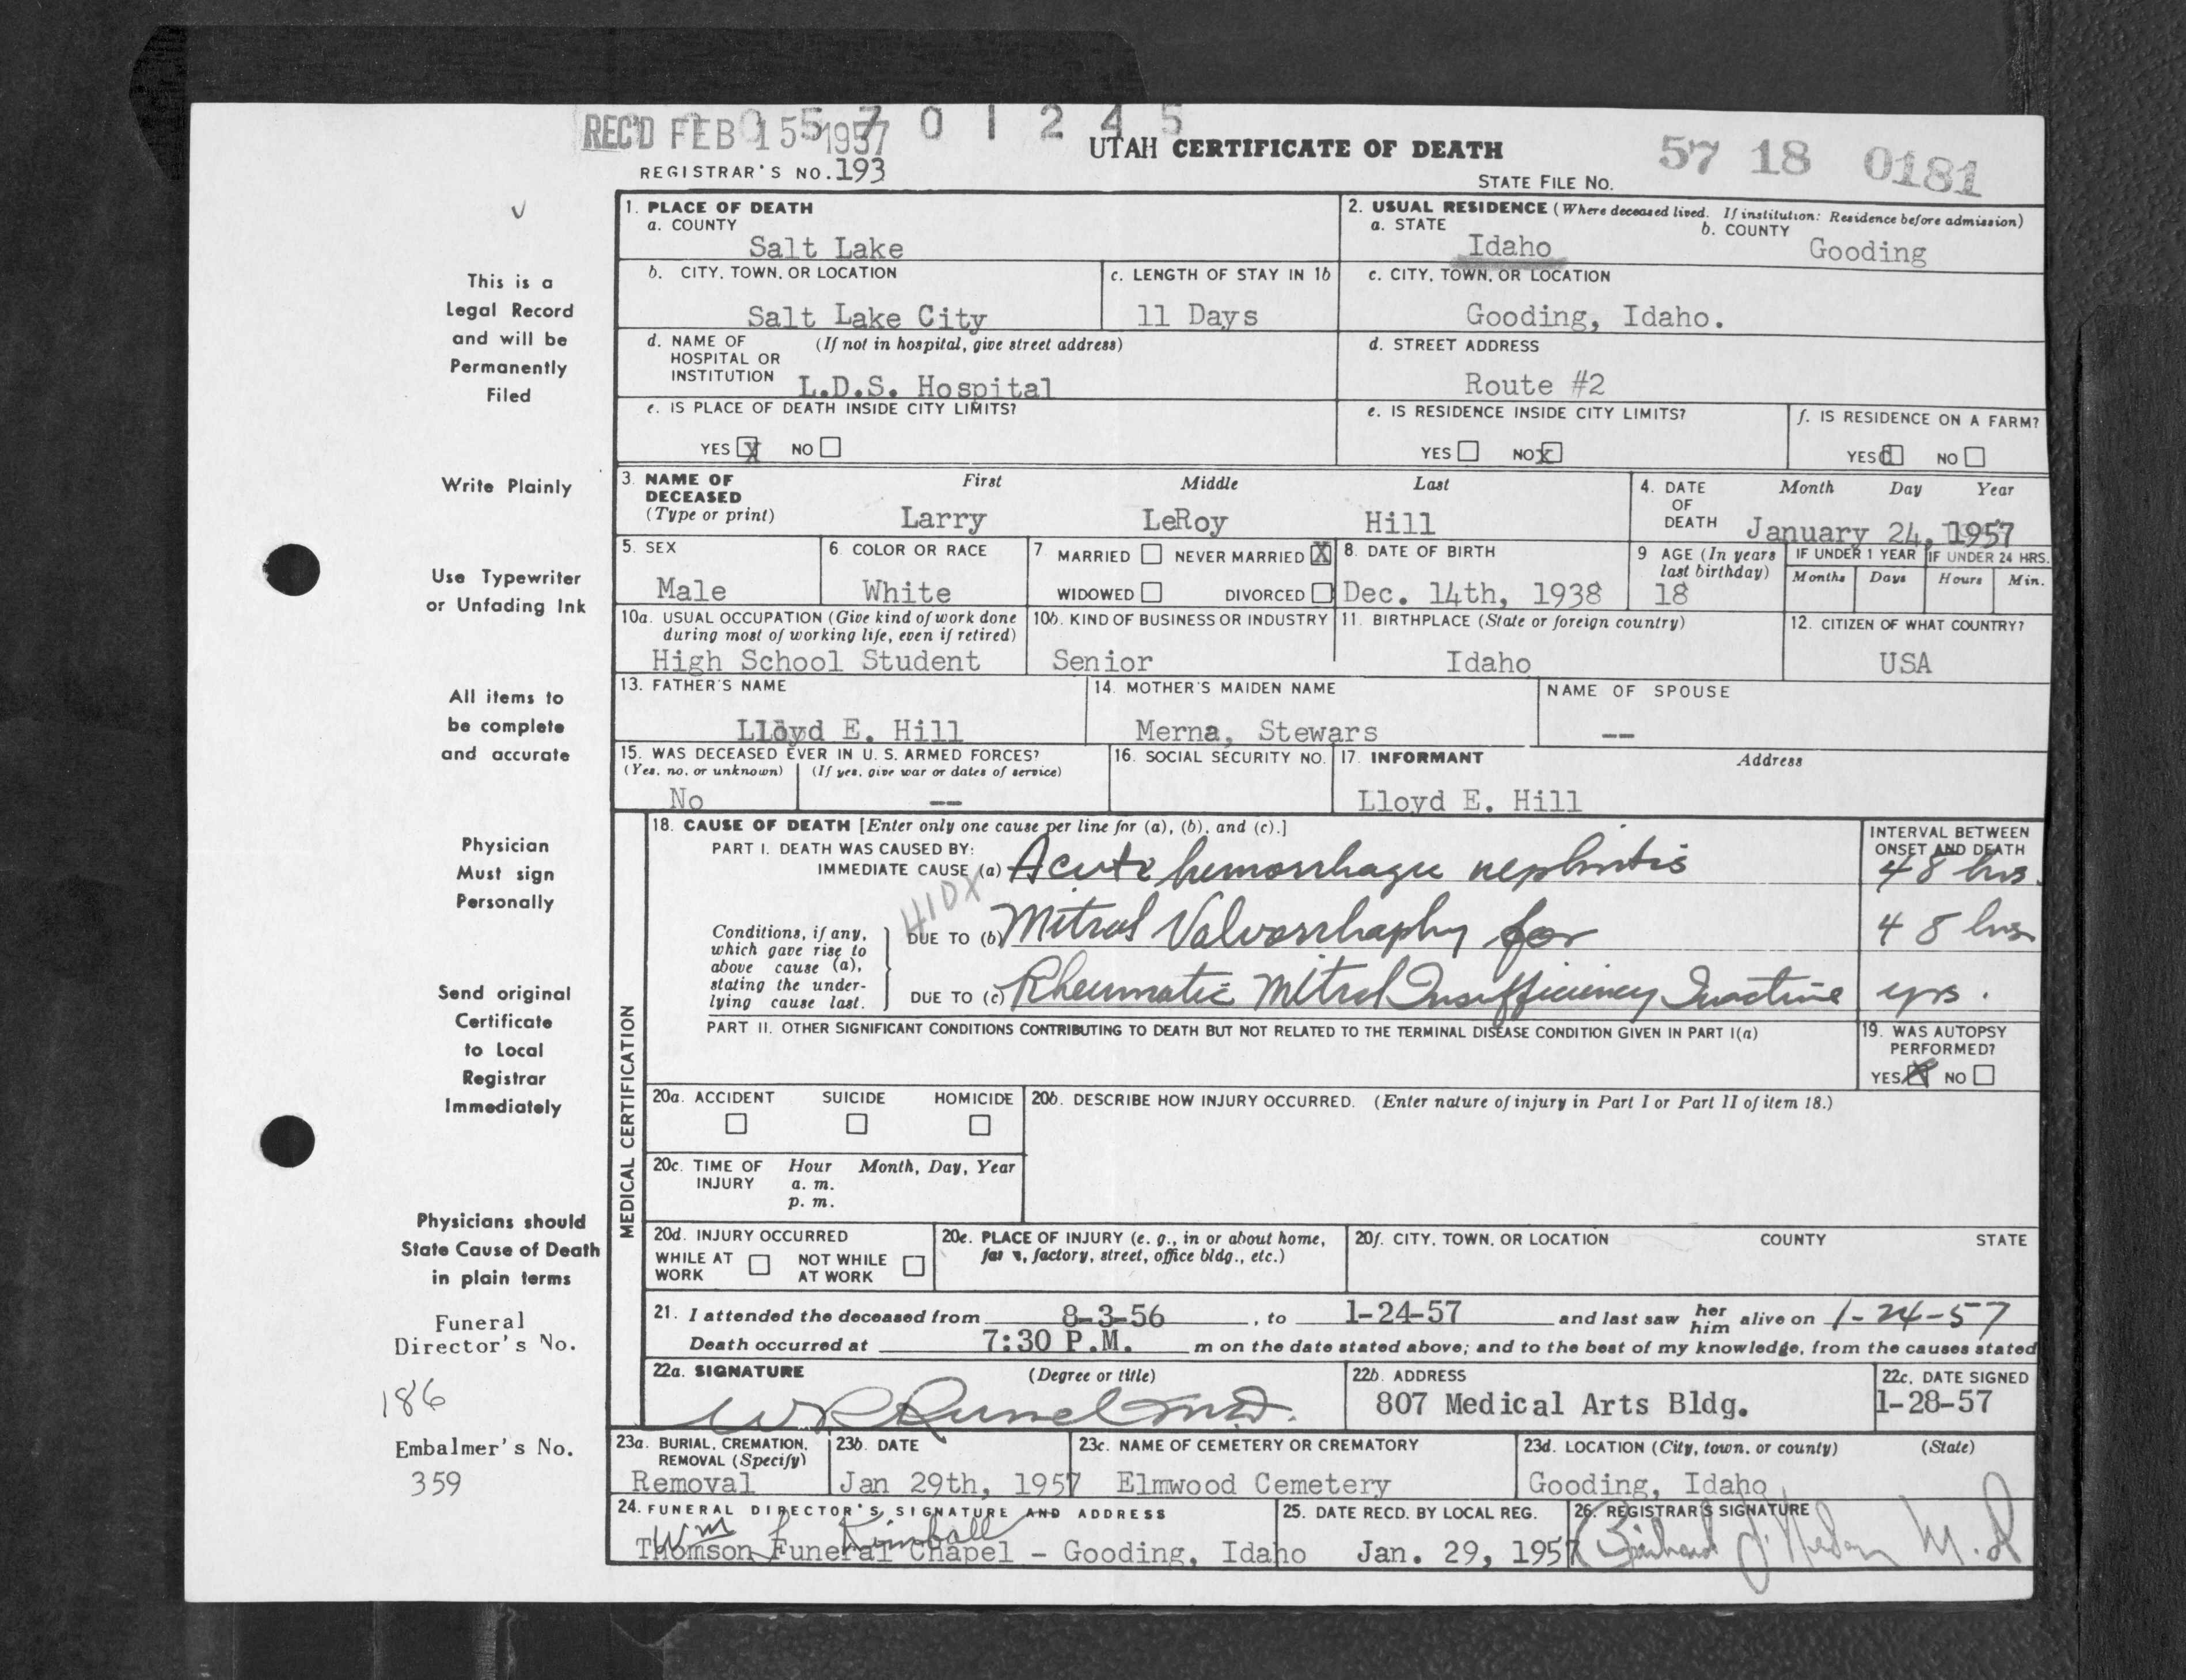 REC'D FEB 15 1957 0 1 2 4 5
UTAH CERTIFICATE OF DEATH
57 18 0181
REGISTRAR'S NO. 193
STATE FILE NO.
1. PLACE OF DEATH
a. COUNTY
Salt Lake
2. USUAL RESIDENCE (Where deceased lived. If institution: Residence before admission)
a. STATE
Idaho
b. COUNTY
Gooding
b. CITY, TOWN, OR LOCATION
Salt Lake City
c. LENGTH OF STAY IN 1b
11 Days
c. CITY, TOWN, OR LOCATION
Gooding, Idaho.
d. NAME OF HOSPITAL OR INSTITUTION
(If not in hospital, give street address)
L.D.S. Hospital
d. STREET ADDRESS
Route #2
e. IS PLACE OF DEATH INSIDE CITY LIMITS?
YES X NO
e. IS RESIDENCE INSIDE CITY LIMITS?
YES NO X
f. IS RESIDENCE ON A FARM?
YES NO
3. NAME OF DECEASED
(Type or print)
First Middle Last
Larry LeRoy Hill
4. DATE OF DEATH
Month Day Year
January 24, 1957
5. SEX
Male
6. COLOR OR RACE
White
7. MARRIED NEVER MARRIED X
WIDOWED DIVORCED
8. DATE OF BIRTH
Dec. 14th, 1938
9 AGE (In years last birthday)
18
IF UNDER 1 YEAR
Months Days
IF UNDER 24 HRS.
Hours Min.
10a. USUAL OCCUPATION (Give kind of work done during most of working life, even if retired)
High School Student
10b. KIND OF BUSINESS OR INDUSTRY
Senior
11. BIRTHPLACE (State or foreign country)
Idaho
12. CITIZEN OF WHAT COUNTRY?
USA
13. FATHER'S NAME
Lloyd E. Hill
14. MOTHER'S MAIDEN NAME
Merna, Stewars
NAME OF SPOUSE
--
15. WAS DECEASED EVER IN U. S. ARMED FORCES?
(Yes, no, or unknown) (If yes, give war or dates of service)
No --
16. SOCIAL SECURITY NO.
17. INFORMANT Address
Lloyd E. Hill
MEDICAL CERTIFICATION
18. CAUSE OF DEATH [Enter only one cause per line for (a), (b), and (c).]
PART I. DEATH WAS CAUSED BY:
IMMEDIATE CAUSE (a) Acute hemorrhagic nephritis
INTERVAL BETWEEN ONSET AND DEATH
48 hrs.
410X
Conditions, if any, which gave rise to above cause (a), stating the underlying cause last.
DUE TO (b) Mitral Valvorrhaphy for
48 hrs
DUE TO (c) Rheumatic Mitral Insufficiency Inactive
yrs.
PART II. OTHER SIGNIFICANT CONDITIONS CONTRIBUTING TO DEATH BUT NOT RELATED TO THE TERMINAL DISEASE CONDITION GIVEN IN PART I(a)
19. WAS AUTOPSY PERFORMED?
YES X NO
20a. ACCIDENT SUICIDE HOMICIDE
20b. DESCRIBE HOW INJURY OCCURRED. (Enter nature of injury in Part I or Part II of item 18.)
20c. TIME OF INJURY
Hour Month, Day, Year
a. m.
p. m.
20d. INJURY OCCURRED
WHILE AT WORK NOT WHILE AT WORK
20e. PLACE OF INJURY (e. g., in or about home, factory, street, office bldg., etc.)
20f. CITY, TOWN, OR LOCATION COUNTY STATE
21. I attended the deceased from 8-3-56, to 1-24-57 and last saw her him alive on 1-24-57
Death occurred at 7:30 P.M. m on the date stated above; and to the best of my knowledge, from the causes stated
22a. SIGNATURE (Degree or title)
M.D.
22b. ADDRESS
807 Medical Arts Bldg.
22c. DATE SIGNED
1-28-57
23a. BURIAL, CREMATION, REMOVAL (Specify)
Removal
23b. DATE
Jan 29th, 1957
23c. NAME OF CEMETERY OR CREMATORY
Elmwood Cemetery
23d. LOCATION (City, town, or county) (State)
Gooding, Idaho
24. FUNERAL DIRECTOR'S SIGNATURE AND ADDRESS
Wm Kimball
Thomson Funeral Chapel - Gooding, Idaho
25. DATE RECD. BY LOCAL REG.
Jan. 29, 1957
26. REGISTRAR'S SIGNATURE
M.D
This is a
Legal Record
and will be
Permanently
Filed
Write Plainly
Use Typewriter
or Unfading Ink
All items to
be complete
and accurate
Physician
Must sign
Personally
Send original
Certificate
to Local
Registrar
Immediately
Physicians should
State Cause of Death
in plain terms
Funeral
Director's No.
186
Embalmer's No.
359